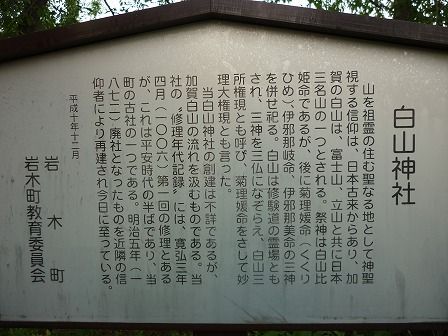 白山神社
山を祖霊の住む聖なる地として神聖
視する信仰は、日本古来からあり、加
賀の白山は、富士山、立山と共に日本
三名山の一つとされる。祭神は白山比
姫命であるが、後に菊理媛命（くくり
ひめ）、伊邪那岐命、伊邪那美命の三神
を併せ祀る。白山は修験道の霊場とも
され、三神を三仏になぞらえ、白山三
所権現とも呼び、菊理媛命をさして妙
理大権現とも言った。
当白山神社の創建は不詳であるが、
加賀白山の流れを汲むものである。当
社の〝修理年代記録〟には、寛弘三年
四月（一〇〇六）第一回の修理とある
が、これは平安時代の半ばであり、当
町の古社の一つである。明治五年（一
八七二）廃社となったものを近隣の信
仰者により再建され今日に至っている。
平成十年十二月
岩木町
岩木町教育委員会